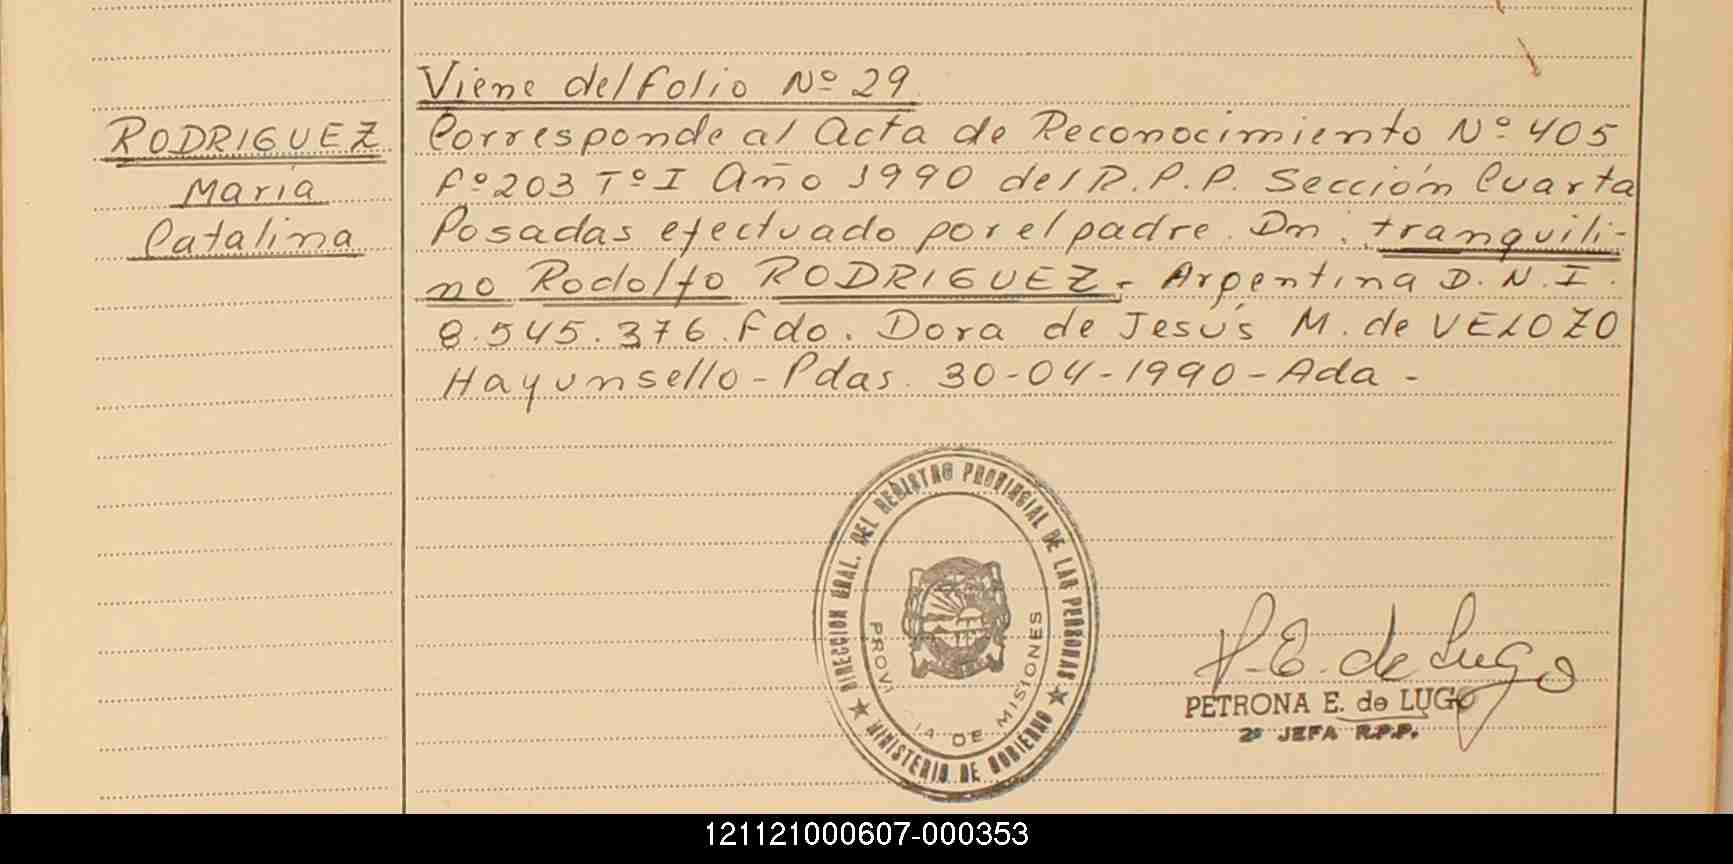 Viene del folio Nº 29
RODRIGUEZ
Maria
Catalina
Corresponde al Acta de Reconocimiento Nº 405
fº 203 Tº I Año 1990 del R.P.P. Sección Cuarta
Posadas efectuado por el padre. Dn. tranquili-
no Rodolfo RODRIGUEZ - Argentina D.N.I.
8.545.376. Fdo. Dora de Jesús M. de VELOZO
Hay un sello - Pdas. 30-04-1990 - Ada -
DIRECCION GRAL. DEL REGISTRO PROVINCIAL DE LAS PERSONAS
★ MINISTERIO DE GOBIERNO ★
PROVI IA DE MISIONES
P. E. de Lugo
PETRONA E. de LUGO
2ª JEFA R.P.P.
121121000607-000353